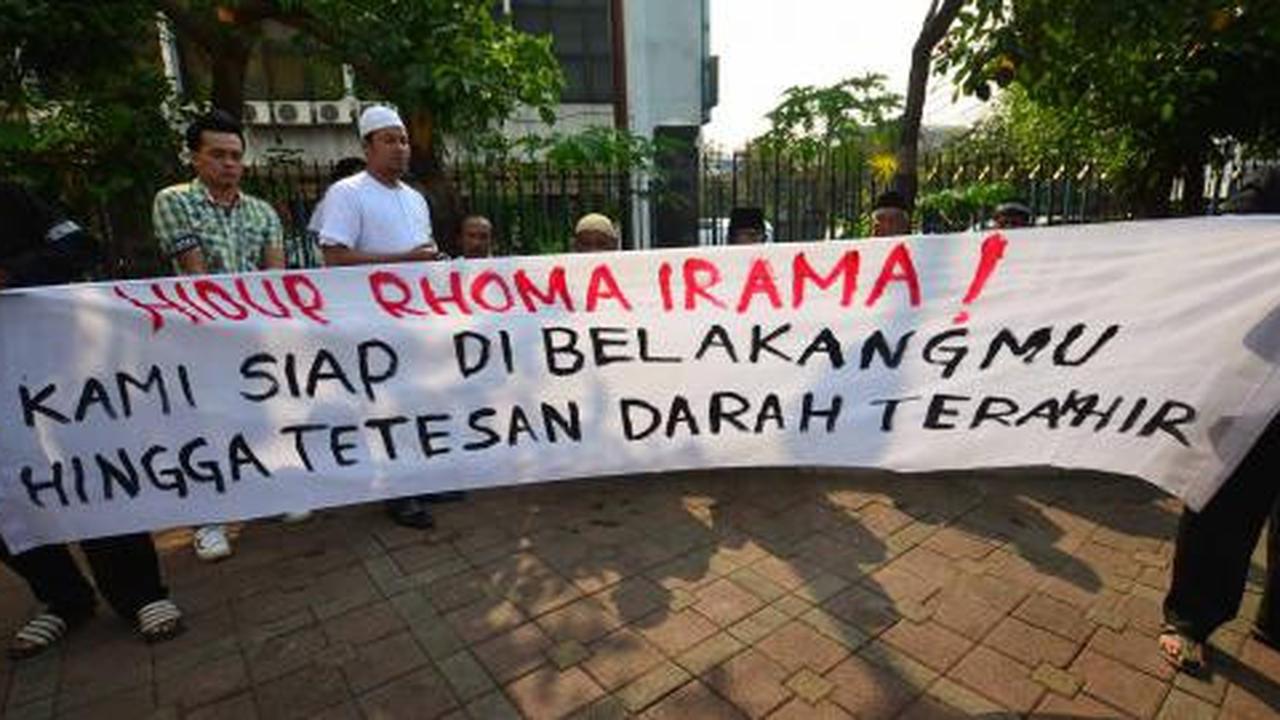 HIDUP RHOMA IRAMA!
KAMI SIAP DI BELAKANGMU
HINGGA TETESAN DARAH TERAKHIR